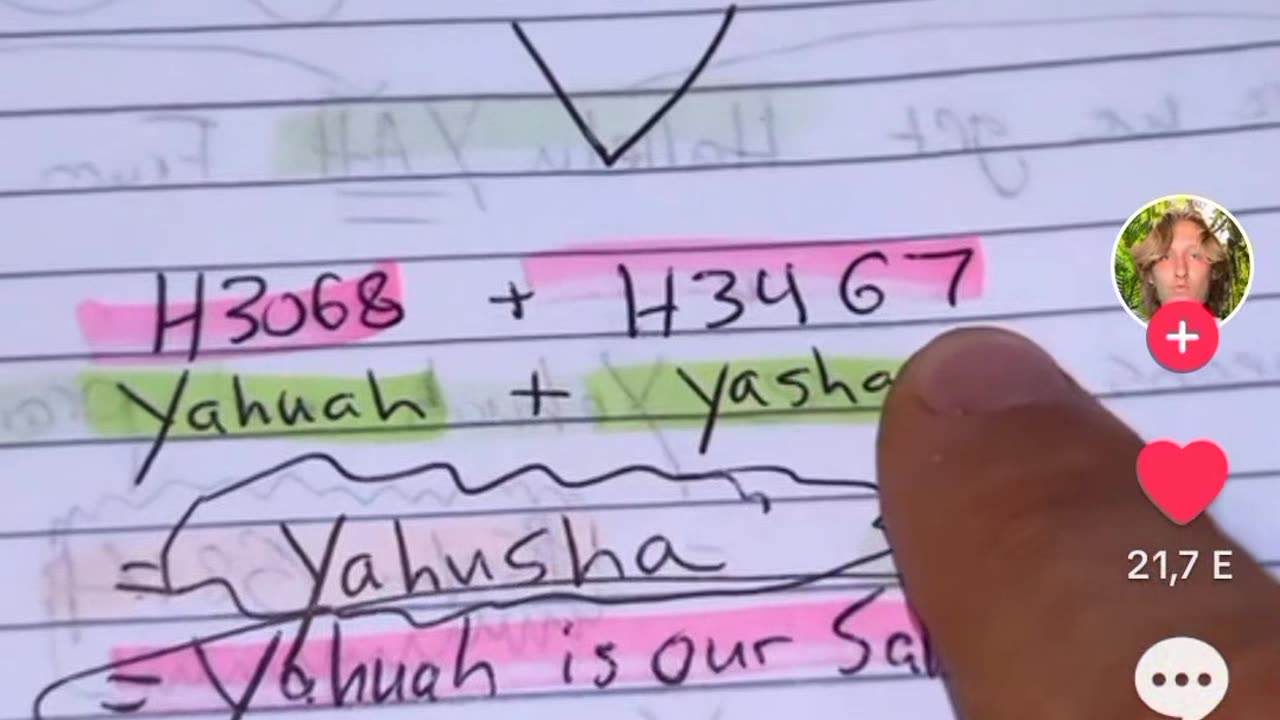 H3068 + H3467
Yahuah + Yasha
= Yahusha
= Yahuah is our
21,7 E